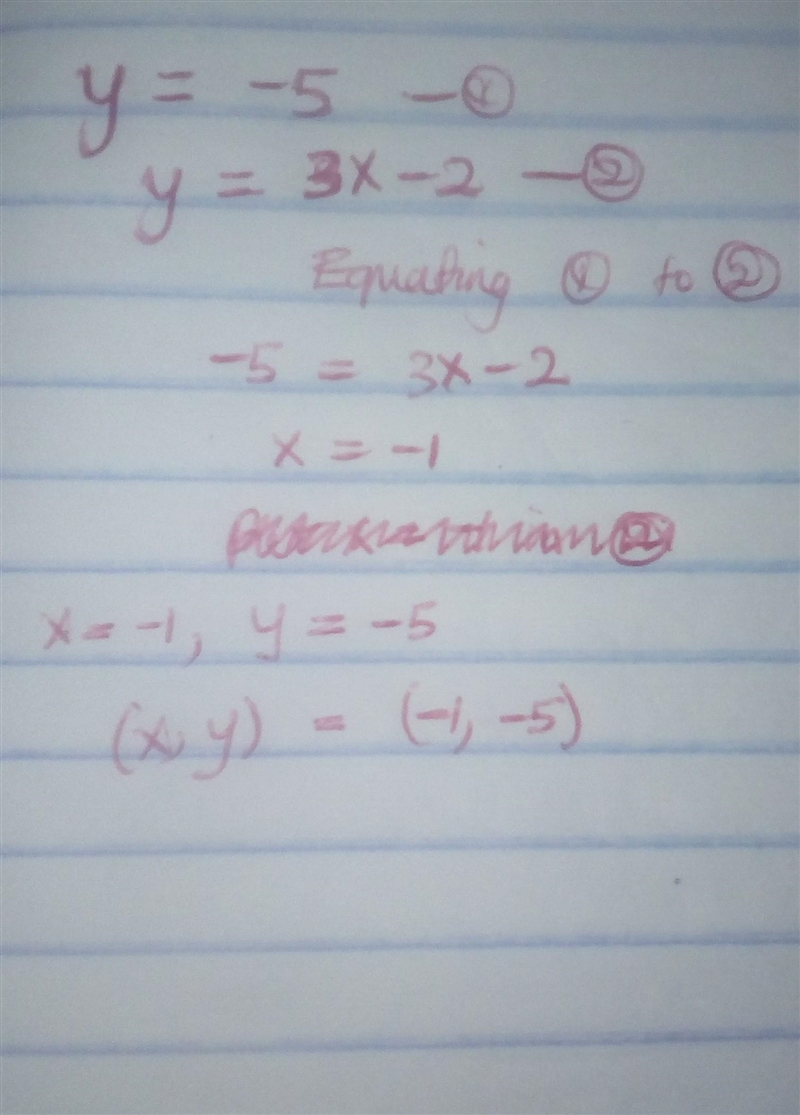 y = -5 —①
y = 3x - 2 —②
Equating ① to ②
-5 = 3x - 2
x = -1
x = -1, y = -5
(x, y) = (-1, -5)